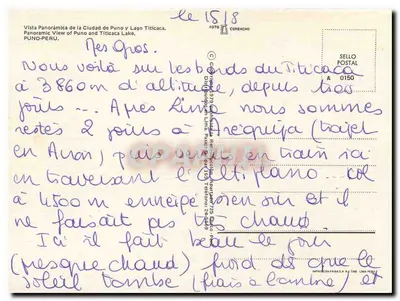 le 18/8
Vista Panorámica de la Ciudad de Puno y Lago Titicaca.
Panoramic View of Puno and Titicaca Lake,
PUNO-PERU.
FOTO CUPENCHO
SELLO
POSTAL
A 0150
Mes Gros.
Nous voilà sur les bords du Titicaca
à 3860m d'altitude, depuis trois
jours... Apres Lima nous sommes
restés 2 jours à Arequipa (trajet
en Avion), puis en train ici
en traversant l'altiplano... col
à 4500m en bien sur et il
ne faisait pas très chaud.
Ici il fait beau le jour
(presque chaud) froid dès que le
soleil tombe (frais à l'ombre) et